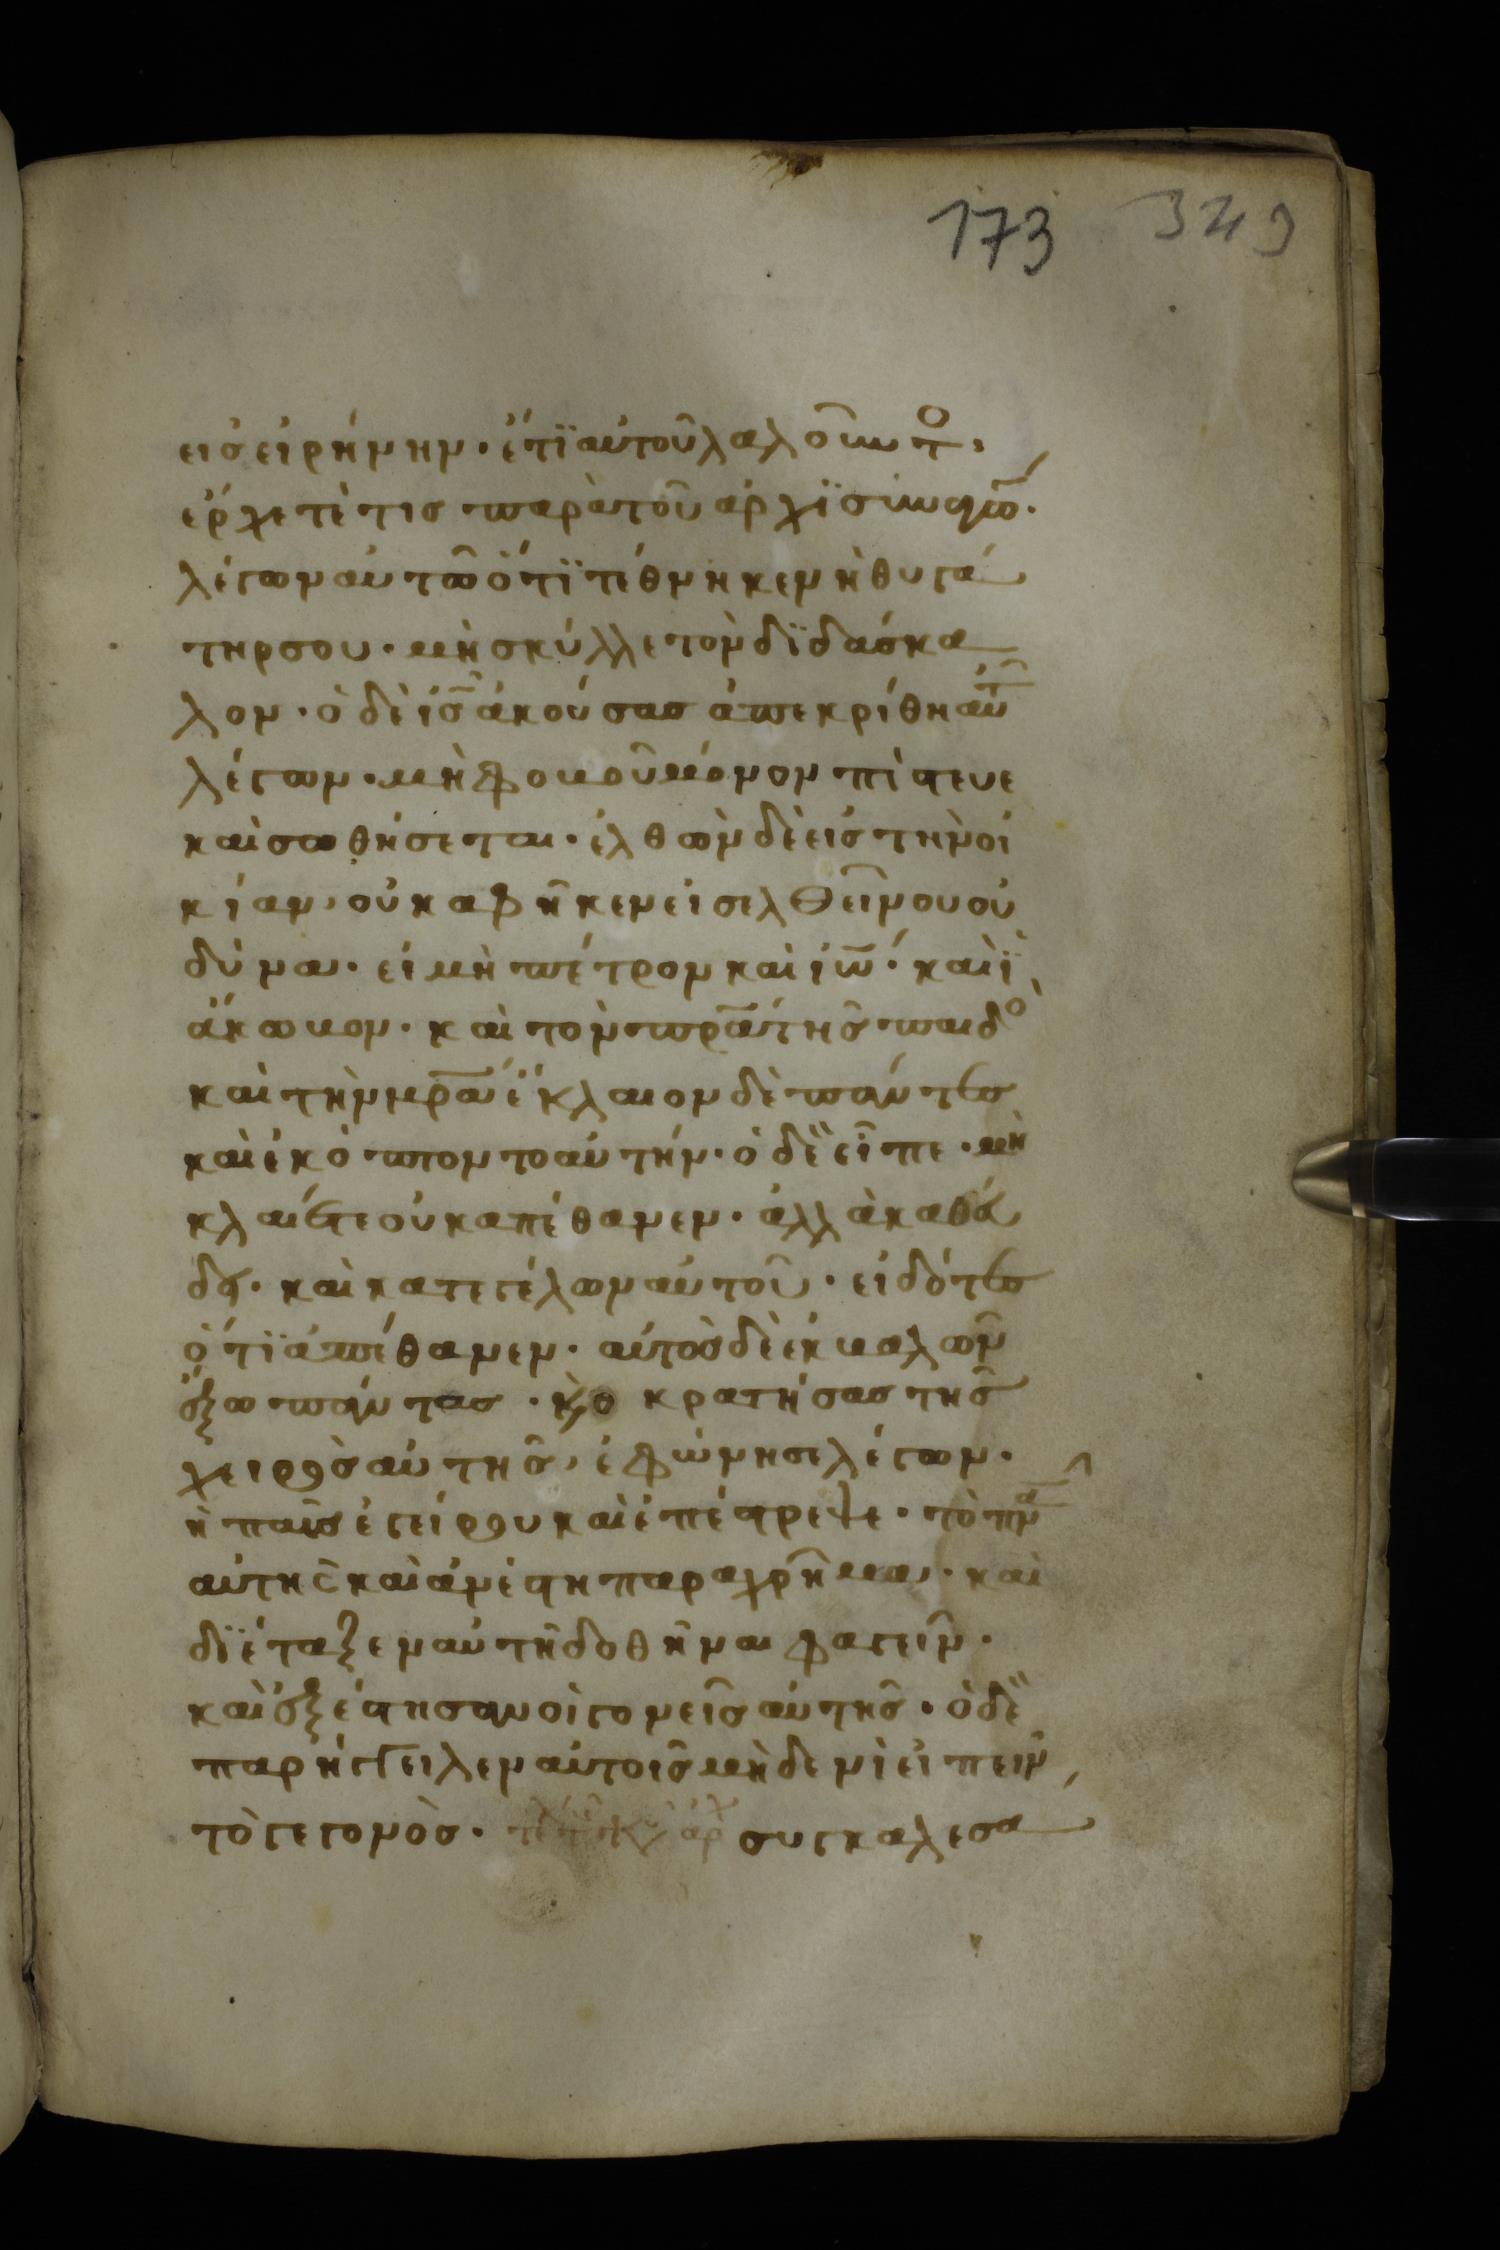 173 349
εἰσ εἰρήνην · ἔτϊ αὐτοῦ λαλοῦντο,
ἔρχετέ τισ παρὰ τοῦ ἀρχϊσυναγώ·
λέγων αὐτῶ ὅτϊ τέθνηκεν ἡ θυγά
τηρ σου · μὴ σκύλλε τὸν δϊδάσκα
λον · ὁ δὲ ις̅ ἀκούσασ ἀπεκρίθη αὐτ
λέγων · μὴ φοβοῦ μόνον πίστευε
καὶ σωθήσεται · ἐλθὼν δὲ εἰσ τὴν οἰ
κίαν, οὐκ ἀφῆκεν εἰσελθεῖν ουού
δύνα · εἰ μὴ πέτρον καὶ ιω̅ · καὶ ϊ
άκωβον · καὶ τὸν πρ̅α τῆσ παιδὸ
καὶ τὴν μρ̅α ἔκλαιον δὲ πάντεσ
καὶ ἐκόπτοντο αὐτήν · ὁ δὲ εἶπε · μὴ
κλαίετε οὐκ ἀπέθανεν · ἀλλὰ καθεύ
δει · καὶ κατεγέλων αὐτοῦ · εἰδότεσ
ὅτϊ ἀπέθανεν · αὐτὸσ δὲ ἐκβαλὼν
ἔξω πάντασ · κ, ο κρατήσασ τῆσ
χειρὸσ αὐτῆσ, ἐφώνησε λέγων ·
ἡ παῖσ ἐγείρου καὶ ἐπέστρεψε · τὸ πν̅α
αὐτῆσ καὶ ἀνέστη παραχρῆμα · καὶ
δϊέταξεν αὐτῆ δοθῆναι φαγεῖν ·
καὶ ἐξέστησαν οἱ γονεῖσ αὐτῆσ · ὁ δὲ
παρήγγειλεν αὐτοῖσ μὴδενὶ εἰπεῖν
τὸ γεγονὸσ · συγκαλεσά